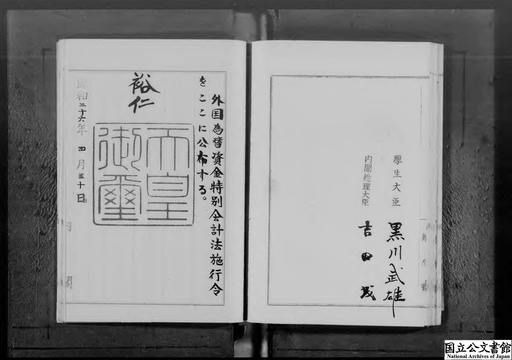 厚生大臣
黒川武雄
内閣総理大臣
吉田茂
外国為替資金特別会計法施行令
をここに公布する。
裕仁
天皇
御璽
昭和二十六年四月三十日
国立公文書館
National Archives of Japan